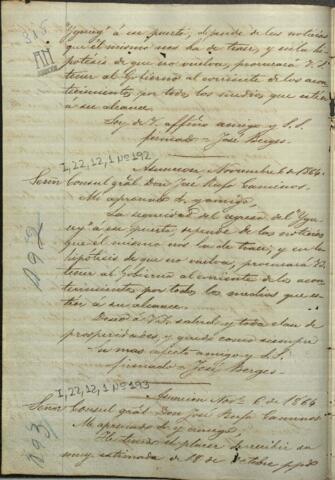 315
Ygurey" á su puerto, depende de las noticias
que el mismo nos ha de traer, y en la hi
pótesis de que no vuelva, procurará V. S.
tener al Gobierno al corriente de los acon
tecimientos por todos los medios que estén
á su alcance.
Soy de V. affmo amigo y S. S.
firmado = José Berges.
I, 22, 12, 1 Nº 192
Asuncion Noviembre 6 de 1864.
Señor Consul gral Don José Rufo Caminos.
Mi apreciado Sr. y amigo,
La seguridad del regreso del "Ygu
rey" á su puerto, depende de las noticias
que el mismo nos ha de traer; y en la
hipótesis de que no vuelva, procurará V.S.
tener al Gobierno al corriente de los acon
tecimientos por todos los medios que es
tén á su alcance.
Deseo á V.S. salud y toda clase de
prosperidades, y quedo como siempre
Su mas afecto amigo y S. S.
firmado = José Berges
192
I, 22, 12, 1 Nº 193
Asuncion Nov.e 6 de 1864
Señor Consul gral Don José Rufo Caminos
Mi apreciado Sr. y amigo.
He tenido el placer de recibir su
muy estimada de 18 de Octubre ppdo
193